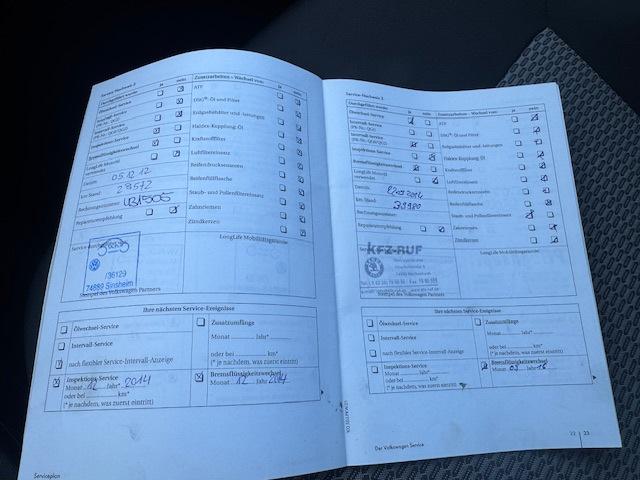 Service-Nachweis 2
Durchgeführt wurde: ja nein Zusatzarbeiten - Wechsel von: ja nein
Ölwechsel-Service ATF
Intervall-Service DSG®-Öl und Filter
Erdgasbehälter und -leitungen
Inspektions-Service Haldex-Kupplung: Öl
Bremsflüssigkeitswechsel Kraftstofffilter
LongLife Motoröl verwendet Luftfiltereinsatz
Datum: 05.12.12 Reifendruckssensoren
km-Stand: 28572 Reifenfüllflasche
Rechnungsnummer: Staub- und Pollenfiltereinsatz
Reparaturempfehlung Zahnriemen
Zündkerzen
LongLife Mobilitätsgarantie:
/36129
74889 Sinsheim
Stempel des Volkswagen Partners
Ihre nächsten Service-Ereignisse
Ölwechsel-Service Zusatzumfänge
Intervall-Service Monat Jahr*
nach flexibler Service-Intervall-Anzeige oder bei km*
(* je nachdem, was zuerst eintritt)
Inspektions-Service Bremsflüssigkeitswechsel
Monat 12 Jahr* 2014 Monat 12 Jahr 2014
oder bei km*
(* je nachdem, was zuerst eintritt)
Serviceplan
Service-Nachweis 3
Durchgeführt wurde: ja nein Zusatzarbeiten - Wechsel von: ja nein
Ölwechsel-Service ATF
Intervall-Service DSG®-Öl und Filter
Erdgasbehälter und -leitungen
Inspektions-Service Haldex-Kupplung: Öl
Bremsflüssigkeitswechsel Kraftstofffilter
LongLife Motoröl verwendet Luftfiltereinsatz
Datum: Reifendruckssensoren
km-Stand: Reifenfüllflasche
Rechnungsnummer: Staub- und Pollenfiltereinsatz
Reparaturempfehlung Zahnriemen
Zündkerzen
LongLife Mobilitätsgarantie:
KFZ-RUF
Stempel des Volkswagen Partners
Ihre nächsten Service-Ereignisse
Ölwechsel-Service Zusatzumfänge
Intervall-Service Monat Jahr*
oder bei km*
nach flexibler Service-Intervall-Anzeige (* je nachdem, was zuerst eintritt)
Inspektions-Service Bremsflüssigkeitswechsel
Monat Jahr* Monat 03 Jahr 16
oder bei km*
(* je nachdem, was zuerst eintritt)
22 | 23
Der Volkswagen Service